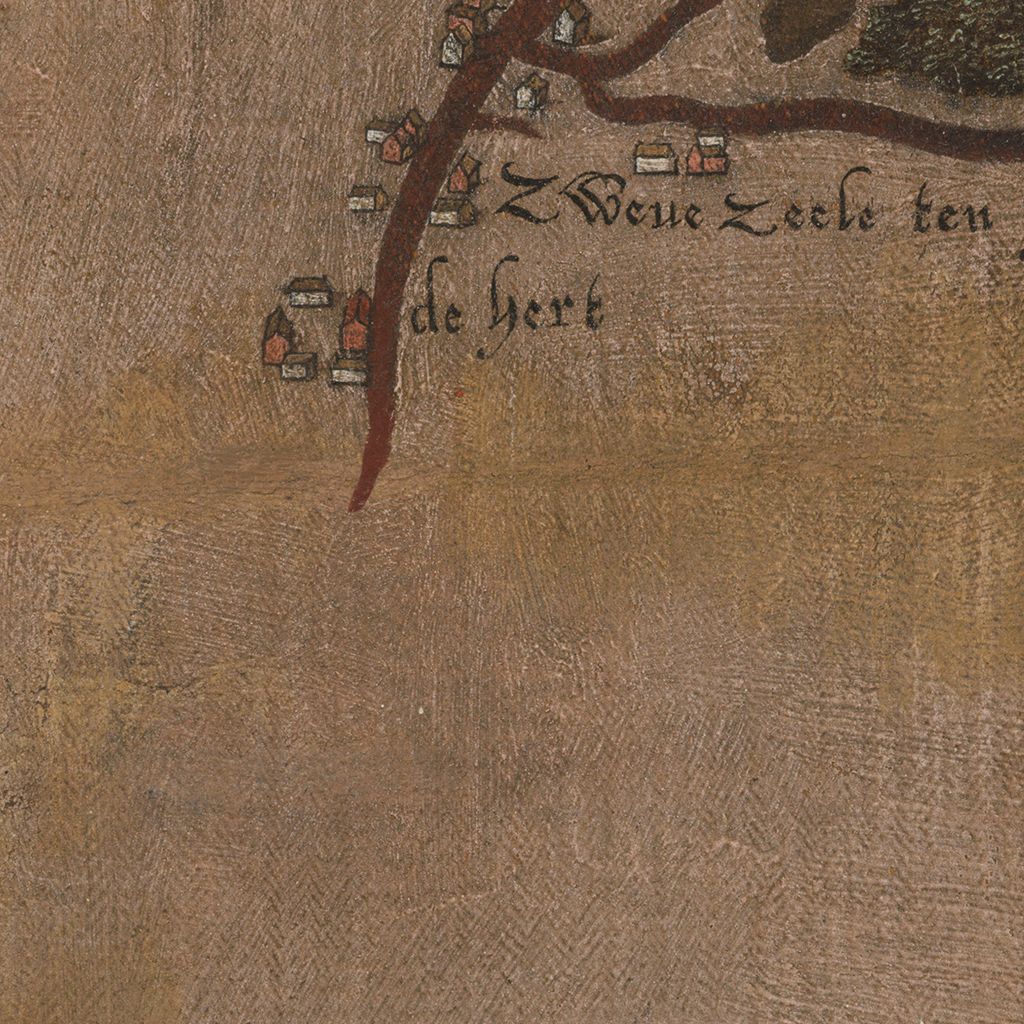 Zweue zeele ten
de hert